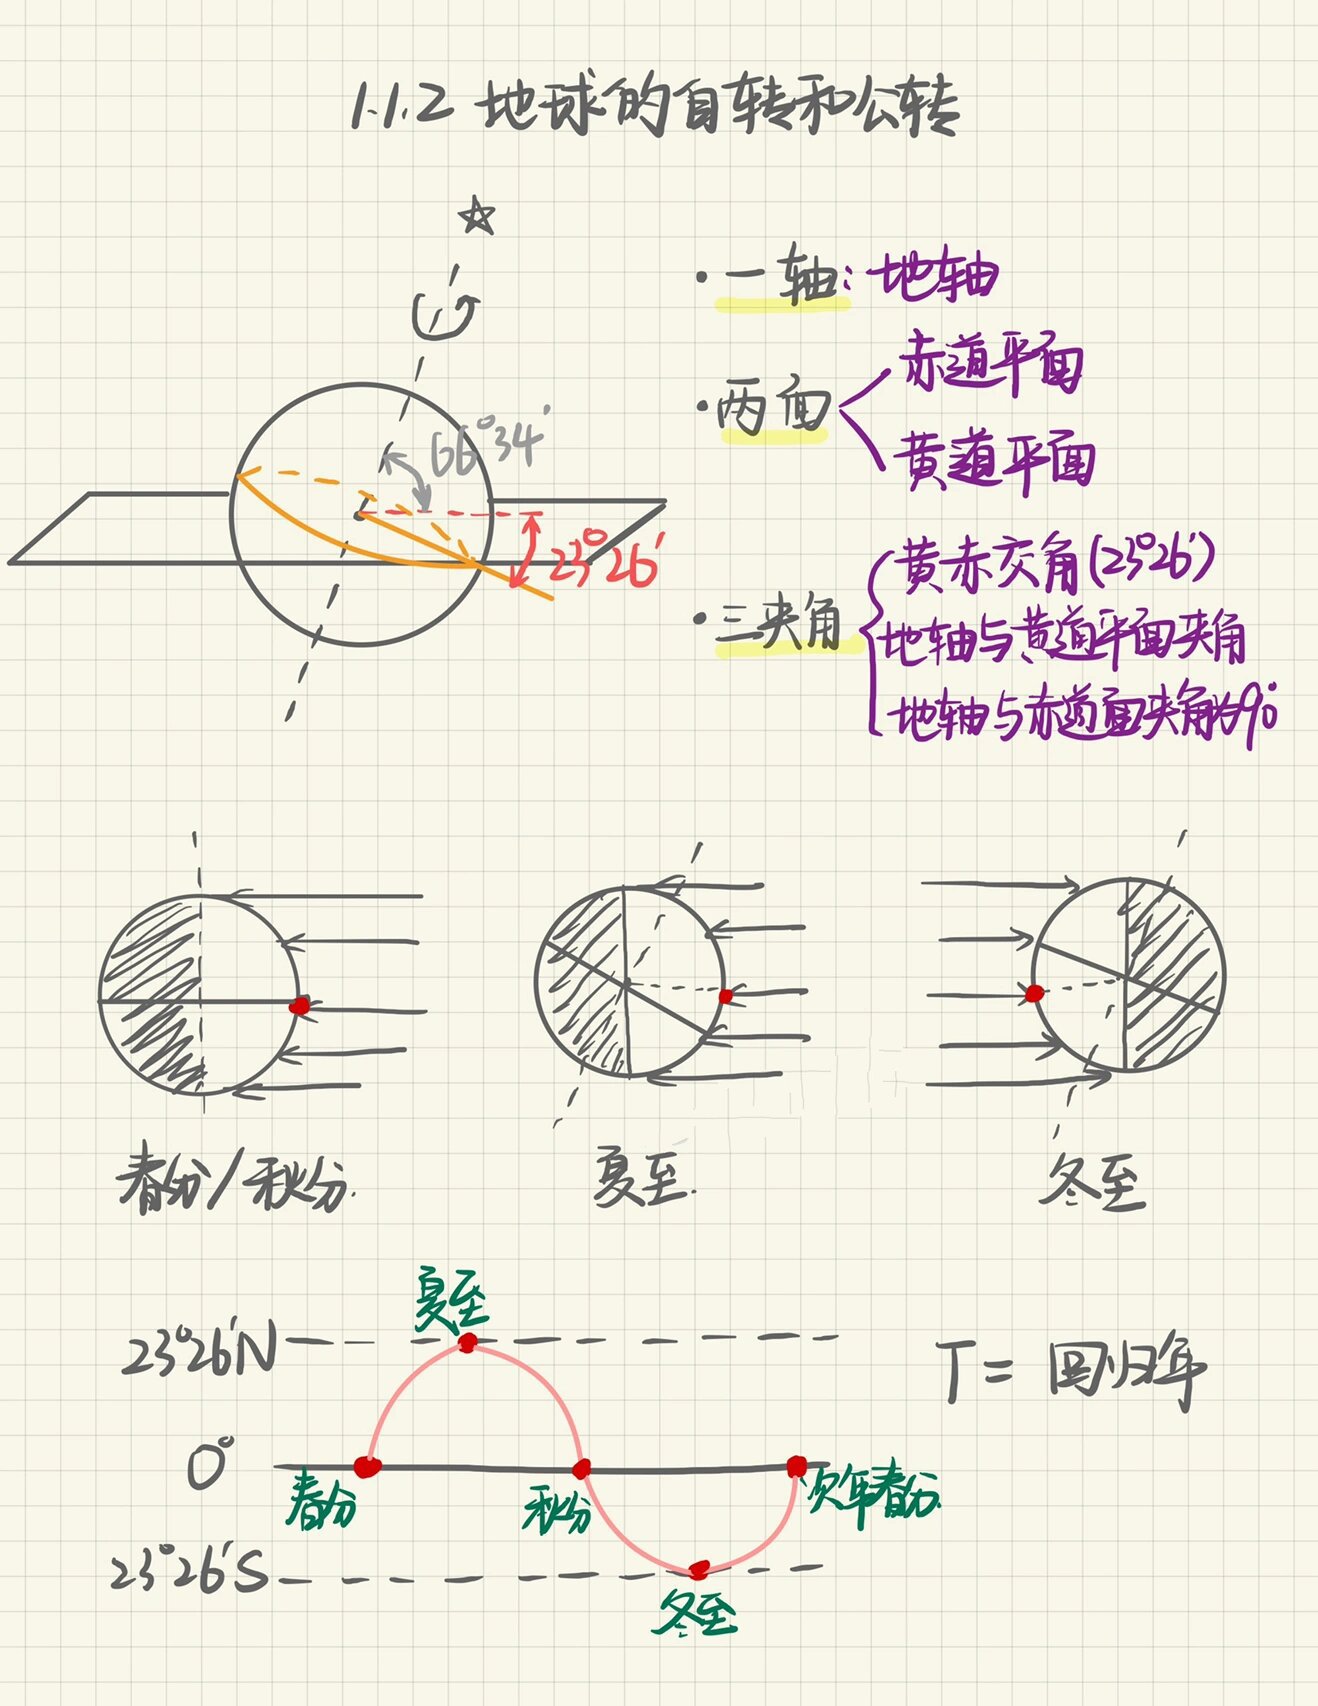 1.1.2 地球的自转和公转
·一轴：地轴
赤道平面
·两面
黄道平面
66°34′
23°26′
黄赤交角(23°26′)
·三夹角
地轴与黄道平面夹角
地轴与赤道面夹角为90°
春分/秋分.
夏至.
冬至
夏至
23°26′N
T= 回归年
0°
春分
秋分
次年春分.
23°26′S
冬至